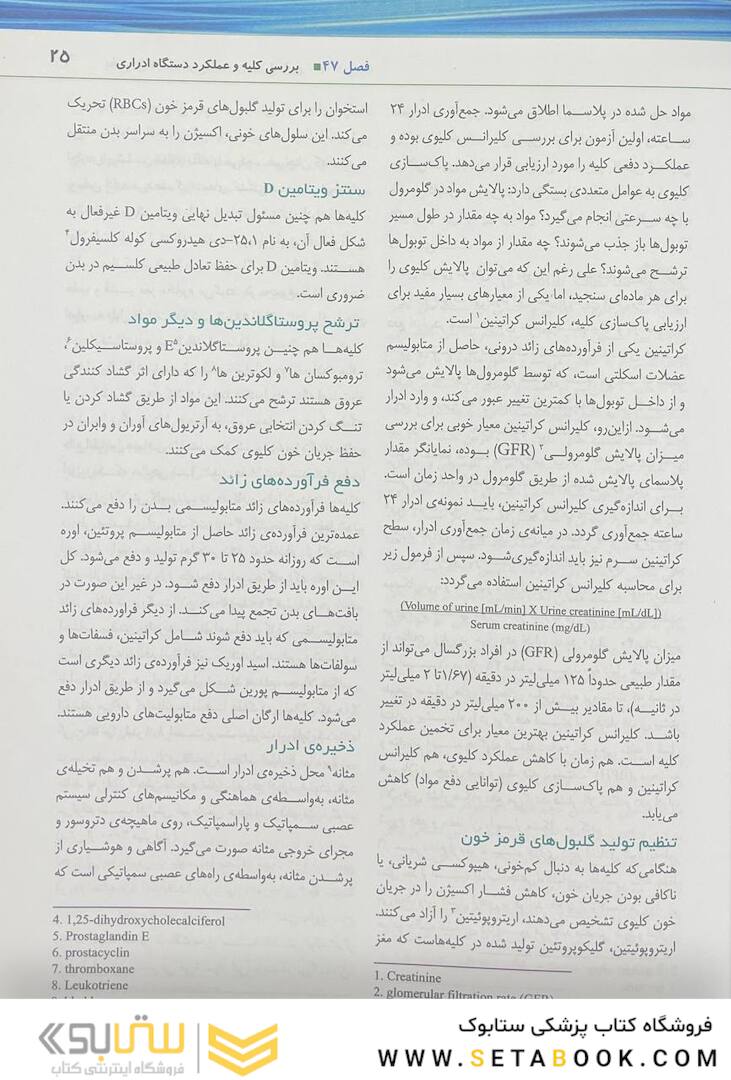 فصل ۴۷ بررسی کلیه و عملکرد دستگاه ادراری
۲۵
مواد حل شده در پلاسما اطلاق می‌شود. جمع‌آوری ادرار ۲۴
ساعته، اولین آزمون برای بررسی کلیرانس کلیوی بوده و
عملکرد دفعی کلیه را مورد ارزیابی قرار می‌دهد. پاک‌سازی
کلیوی به عوامل متعددی بستگی دارد: پالایش مواد در گلومرول
با چه سرعتی انجام می‌گیرد؟ مواد به چه مقدار در طول مسیر
توبول‌ها باز جذب می‌شوند؟ چه مقدار از مواد به داخل توبول‌ها
ترشح می‌شوند؟ علی رغم این که می‌توان پالایش کلیوی را
برای هر ماده‌ای سنجید، اما یکی از معیارهای بسیار مفید برای
ارزیابی پاک‌سازی کلیه، کلیرانس کراتینین۱ است.
کراتینین یکی از فرآورده‌های زائد درونی، حاصل از متابولیسم
عضلات اسکلتی است، که توسط گلومرول‌ها پالایش می‌شود
و از داخل توبول‌ها با کمترین تغییر عبور می‌کند، و وارد ادرار
می‌شود. ازاین‌رو، کلیرانس کراتینین معیار خوبی برای بررسی
میزان پالایش گلومرولی۲ (GFR) بوده، نمایانگر مقدار
پلاسمای پالایش شده از طریق گلومرول در واحد زمان است.
برای اندازه‌گیری کلیرانس کراتینین، باید نمونه‌ی ادرار ۲۴
ساعته جمع‌آوری گردد. در میانه‌ی زمان جمع‌آوری ادرار، سطح
کراتینین سرم نیز باید اندازه‌گیری‌شود. سپس از فرمول زیر
برای محاسبه کلیرانس کراتینین استفاده می‌گردد:
(Volume of urine [mL/min] X Urine creatinine [mL/dL])
Serum creatinine (mg/dL)
میزان پالایش گلومرولی (GFR) در افراد بزرگسال می‌تواند از
مقدار طبیعی حدوداً ۱۲۵ میلی‌لیتر در دقیقه (۱/۶۷ تا ۲ میلی‌لیتر
در ثانیه)، تا مقادیر بیش از ۲۰۰ میلی‌لیتر در دقیقه در تغییر
باشد. کلیرانس کراتینین بهترین معیار برای تخمین عملکرد
کلیه است. هم زمان با کاهش عملکرد کلیوی، هم کلیرانس
کراتینین و هم پاک‌سازی کلیوی (توانایی دفع مواد) کاهش
می‌یابد.
تنظیم تولید گلبول‌های قرمز خون
هنگامی‌که کلیه‌ها به دنبال کم‌خونی، هیپوکسی شریانی، یا
ناکافی بودن جریان خون، کاهش فشار اکسیژن را در جریان
خون کلیوی تشخیص می‌دهند، اریتروپوئیتین۳ را آزاد می‌کنند.
اریتروپوئیتین، گلیکوپروتئین تولید شده در کلیه‌هاست که مغز
1. Creatinine
2. glomerular filtration rate (GFR)
استخوان را برای تولید گلبول‌های قرمز خون (RBCs) تحریک
می‌کند. این سلول‌های خونی، اکسیژن را به سراسر بدن منتقل
می‌کنند.
سنتز ویتامین D
کلیه‌ها هم چنین مسئول تبدیل نهایی ویتامین D غیرفعال به
شکل فعال آن، به نام ۲۵،۱-دی هیدروکسی کوله کلسیفرول۴
هستند. ویتامین D برای حفظ تعادل طبیعی کلسیم در بدن
ضروری است.
ترشح پروستاگلاندین‌ها و دیگر مواد
کلیه‌ها هم چنین پروستاگلاندین E۵ و پروستاسیکلین۶،
ترومبوکسان ها۷ و لکوترین ها۸ را که دارای اثر گشاد کنندگی
عروق هستند ترشح می‌کنند. این مواد از طریق گشاد کردن یا
تنگ کردن انتخابی عروق، به آرتریول‌های آوران و وابران در
حفظ جریان خون کلیوی کمک می‌کنند.
دفع فرآورده‌های زائد
کلیه‌ها فرآورده‌های زائد متابولیسمی بدن را دفع می‌کنند.
عمده‌ترین فرآورده‌ی زائد حاصل از متابولیسم پروتئین، اوره
است که روزانه حدود ۲۵ تا ۳۰ گرم تولید و دفع می‌شود. کل
این اوره باید از طریق ادرار دفع شود. در غیر این صورت در
بافت‌های بدن تجمع پیدا می‌کند. از دیگر فراورده‌های زائد
متابولیسمی که باید دفع شوند شامل کراتینین، فسفات‌ها و
سولفات‌ها هستند. اسید اوریک نیز فرآورده‌ی زائد دیگری است
که از متابولیسم پورین شکل می‌گیرد و از طریق ادرار دفع
می‌شود. کلیه‌ها ارگان اصلی دفع متابولیت‌های دارویی هستند.
ذخیره‌ی ادرار
مثانه۹ محل ذخیره‌ی ادرار است. هم پرشدن و هم تخیله‌ی
مثانه، به‌واسطه‌ی هماهنگی و مکانیسم‌های کنترلی سیستم
عصبی سمپاتیک و پاراسمپاتیک، روی ماهیچه‌ی دتروسور و
مجرای خروجی مثانه صورت می‌گیرد. آگاهی و هوشیاری از
پرشدن مثانه، به‌واسطه‌ی راه‌های عصبی سمپاتیکی است که
4. 1,25-dihydroxycholecalciferol
5. Prostaglandin E
6. prostacyclin
7. thromboxane
8. Leukotriene
فروشگاه کتاب پزشکی ستابوک
WWW.SETABOOK.COM
ستابوک
فروشگاه اینترنتی کتاب